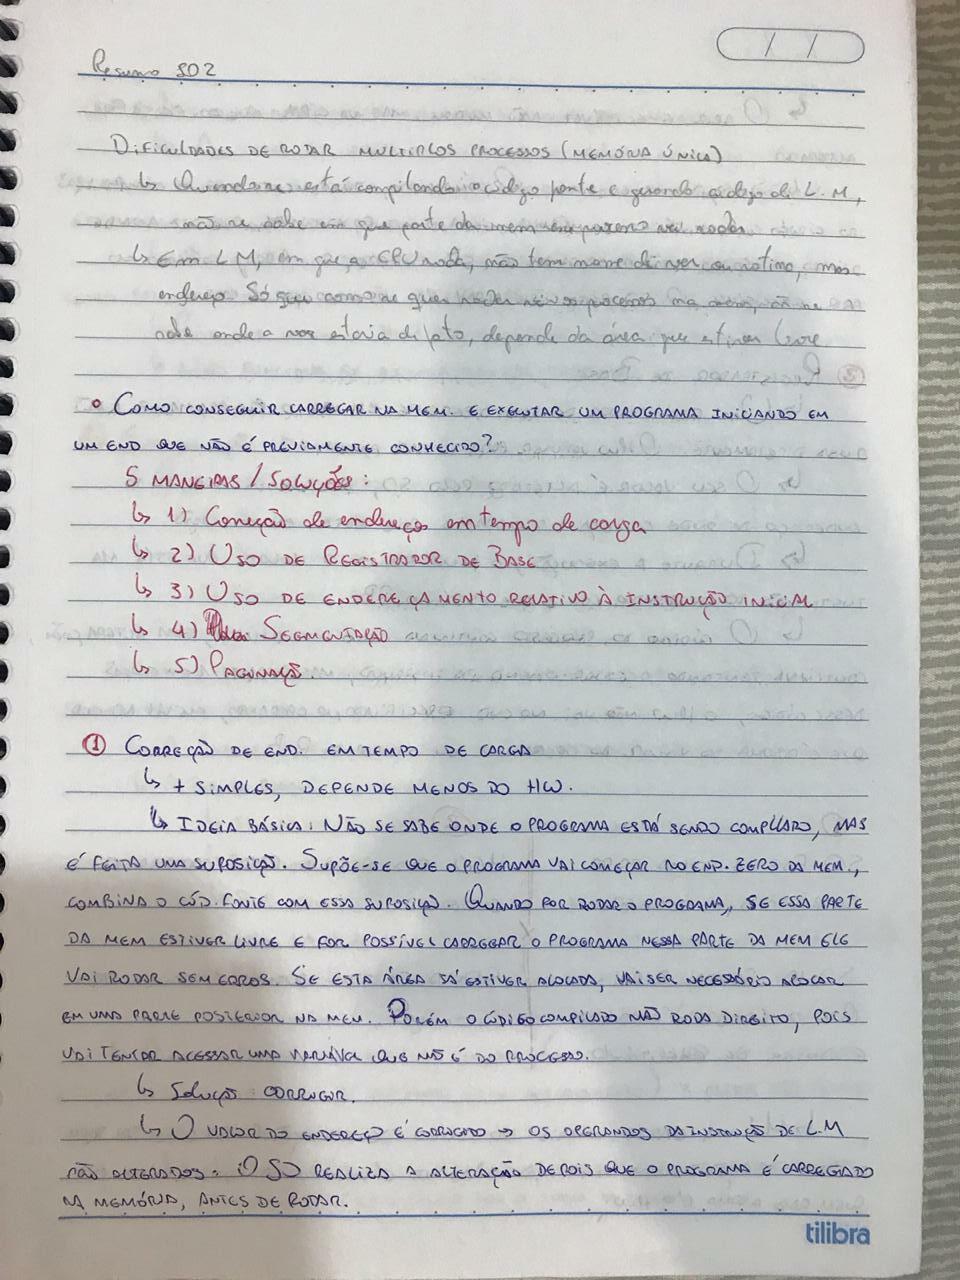 Resumo SO2
DIFICULDADES DE RODAR MULTIPLOS PROCESSOS (MEMÓRIA ÚNICA)
↳ Quando se está compilando o código fonte e gerando código de L.M,
não se sabe em que parte da mem esse processo vai rodar
↳ Em LM, em que a CPU roda, não tem nome de var ou rotina, mas
endereço. Só que como se quer vários processos na mem, não se
sabe onde a var estaria de fato, depende da área que estiver livre
• COMO CONSEGUIR CARREGAR NA MEM. E EXECUTAR UM PROGRAMA INICIANDO EM
UM END QUE NÃO É PREVIAMENTE CONHECIDO?
5 MANEIRAS / SOLUÇÕES:
↳ 1) Correção de endereços em tempo de carga
↳ 2) USO DE REGISTRADOR DE BASE
↳ 3) USO DE ENDEREÇAMENTO RELATIVO À INSTRUÇÃO INICIAL
↳ 4) SEGMENTAÇÃO
↳ 5) PAGINAÇÃO.
① CORREÇÃO DE END. EM TEMPO DE CARGA
↳ + SIMPLES, DEPENDE MENOS DO HW.
↳ IDEIA BÁSICA: NÃO SE SABE ONDE O PROGRAMA ESTÁ SENDO COMPILADO, MAS
É FEITA UMA SUPOSIÇÃO. SUPÕE-SE QUE O PROGRAMA VAI COMEÇAR NO END. ZERO DA MEM.,
COMBINA O CÓD. FONTE COM ESSA SUPOSIÇÃO. QUANDO FOR RODAR O PROGRAMA, SE ESSA PARTE
DA MEM ESTIVER LIVRE E FOR POSSÍVEL CARREGAR O PROGRAMA NESSA PARTE DA MEM ELE
VAI RODAR SEM ERROS. SE ESTA ÁREA JÁ ESTIVER ALOCADA, VAI SER NECESSÁRIO ALOCAR
EM UMA PARTE POSTERIOR NA MEM. PORÉM O CÓDIGO COMPILADO NÃO RODA DIREITO, POIS
VAI TENTAR ACESSAR UMA VARIÁVEL QUE NÃO É DO PROCESSO.
↳ Solução: CORRIGIR.
↳ O VALOR DO ENDEREÇO É CORRIGIDO → OS OPERANDOS DA INSTRUÇÃO DE L.M
SÃO ALTERADOS. O SO REALIZA A ALTERAÇÃO DEPOIS QUE O PROGRAMA É CARREGADO
NA MEMÓRIA, ANTES DE RODAR.
tilibra